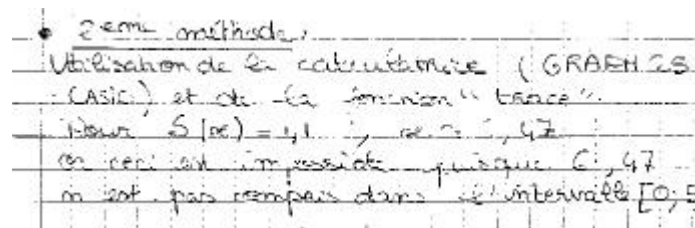 • 2eme méthode.
Utilisation de la calculatrice (GRAPH 25
CASIO) et de la fonction "trace".
Pour S(x) = 1,1 ; x ≈ , 47
or ceci est impossible puisque 6,47
n est pas compris dans l'intervalle [0, 5